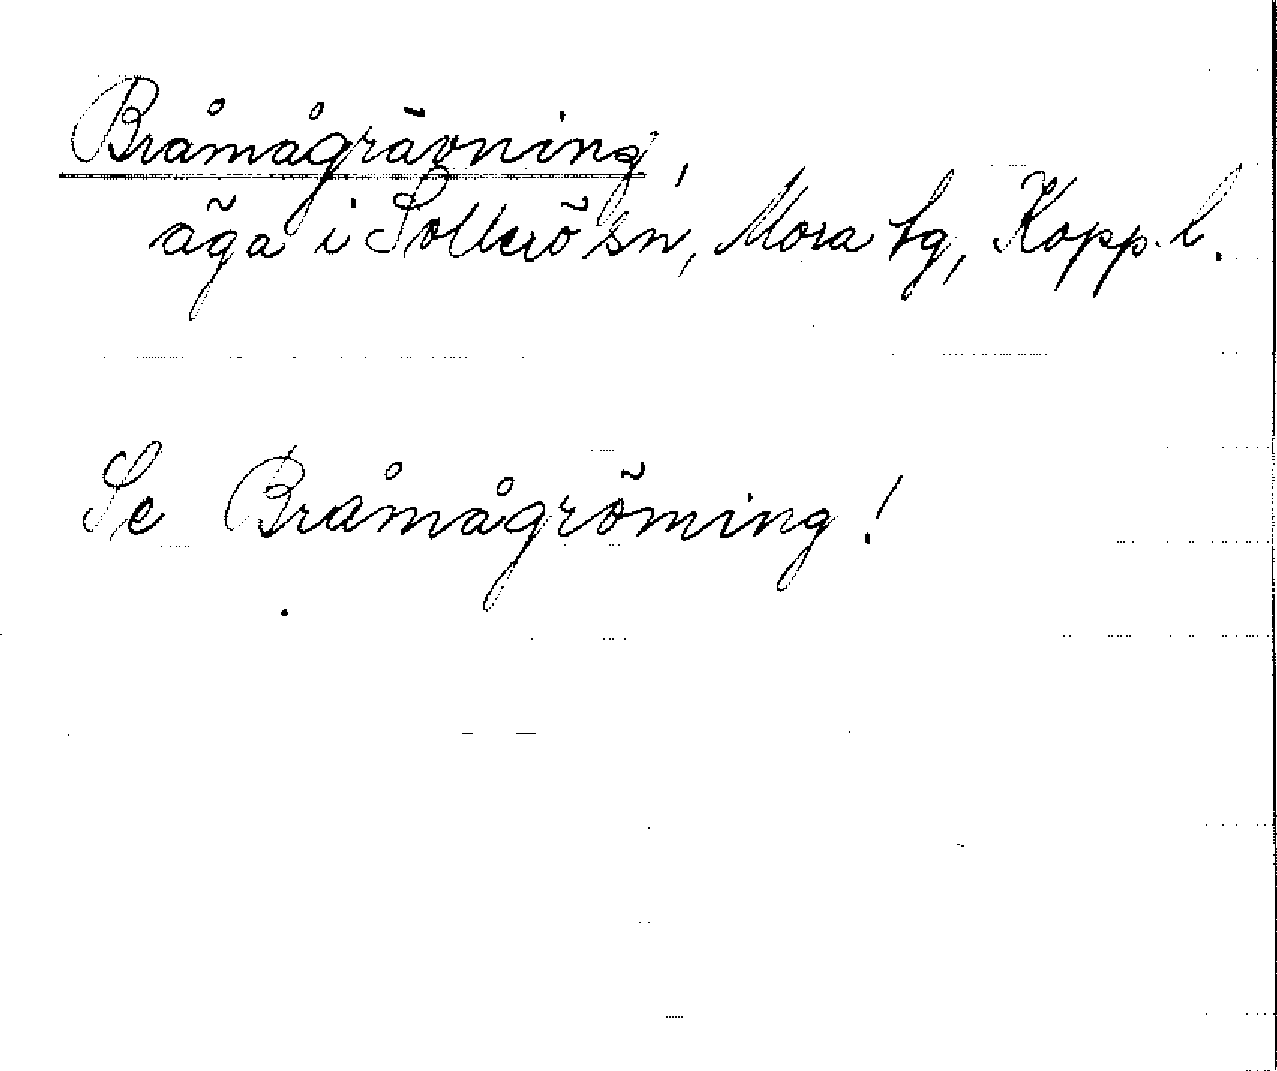 Bråmågrävning,
äga i Sollerö sn, Mora tg, Kopp. l.
Se Bråmågröming!